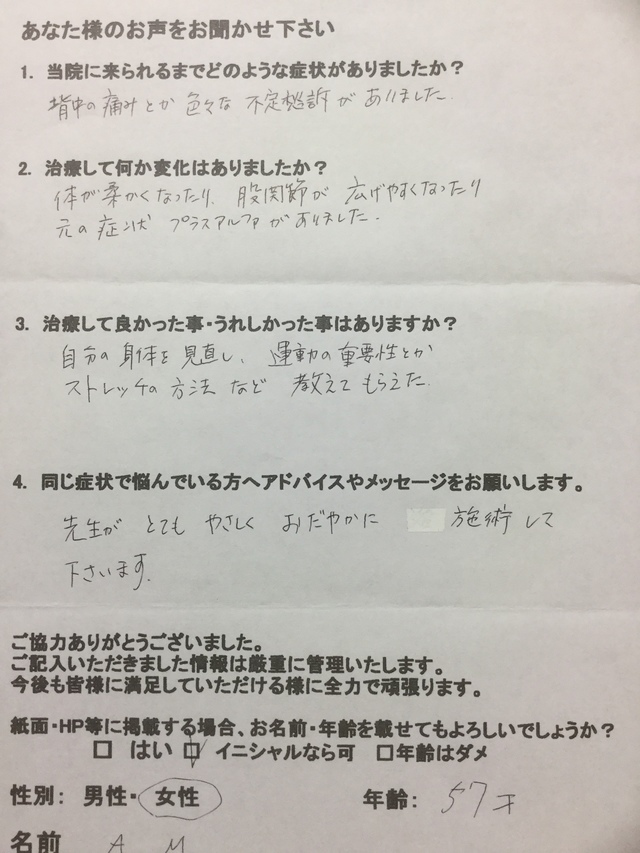 あなた様のお声をお聞かせ下さい
1. 当院に来られるまでどのような症状がありましたか?
背中の痛みとか 色々な 不定愁訴がありました.
2. 治療して何か変化はありましたか?
体が柔かくなったり、股関節が 広げやすくなったり
元の症状 プラスアルファがありました.
3. 治療して良かった事・うれしかった事はありますか?
自分の身体を見直し、運動の重要性とか
ストレッチの方法 など 教えてもらえた.
4. 同じ症状で悩んでいる方へアドバイスやメッセージをお願いします。
先生が とても やさしく おだやかに 施術して
下さいます.
ご協力ありがとうございました。
ご記入いただきました情報は厳重に管理いたします。
今後も皆様に満足していただける様に全力で頑張ります。
紙面・HP等に掲載する場合、お名前・年齢を載せてもよろしいでしょうか?
□ はい □ イニシャルなら可 □年齢はダメ
性別: 男性・女性 年齢: 57才
名前 A M